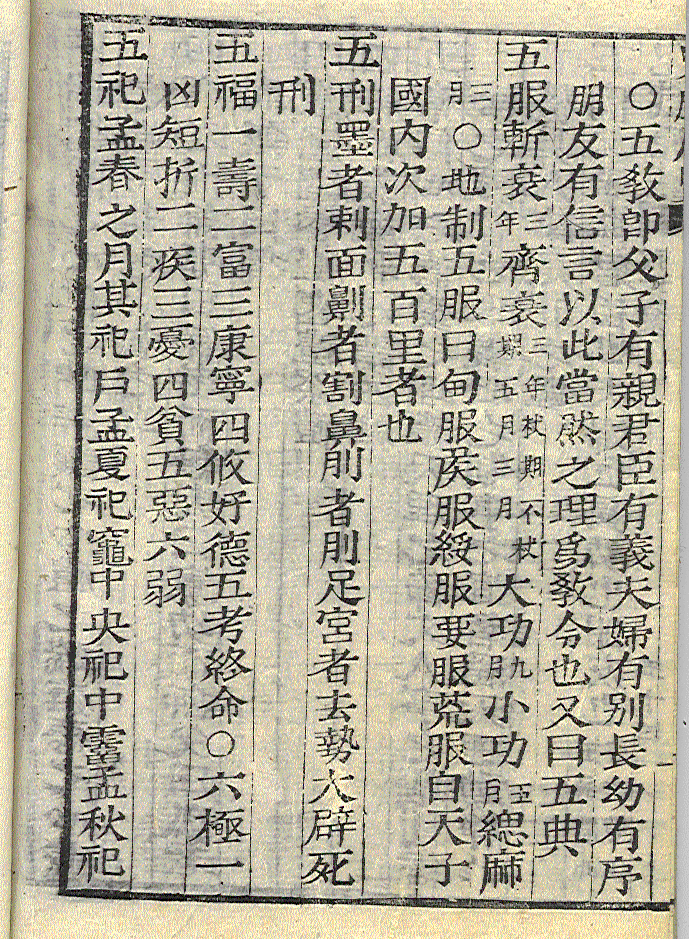 ○五敎卽父子有親君臣有義夫婦有別長幼有序
朋友有信言以此當然之理爲敎令也又曰五典
五服斬衰三年齊衰三年杖期不杖期五月三月大功九月小功五月緦麻
三月○地制五服曰甸服矦服綏服要服荒服自天子
國內次加五百里者也
五刑墨者刺面劓者割鼻刖者刖足宮者去勢大辟死
刑
五福一壽二富三康寧四攸好德五考終命○六極一
凶短折二疾三憂四貧五惡六弱
五祀孟春之月其祀戶孟夏祀竈中央祀中霤孟秋祀